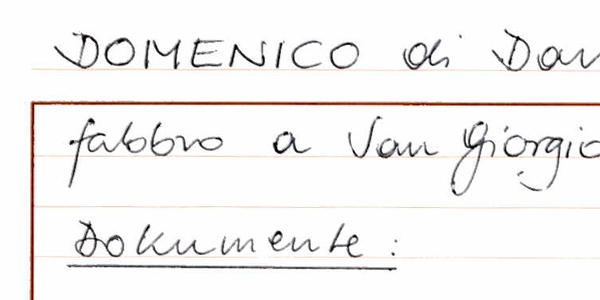 DOMENICO di
fabbro a San Giorgio
Dokumente: